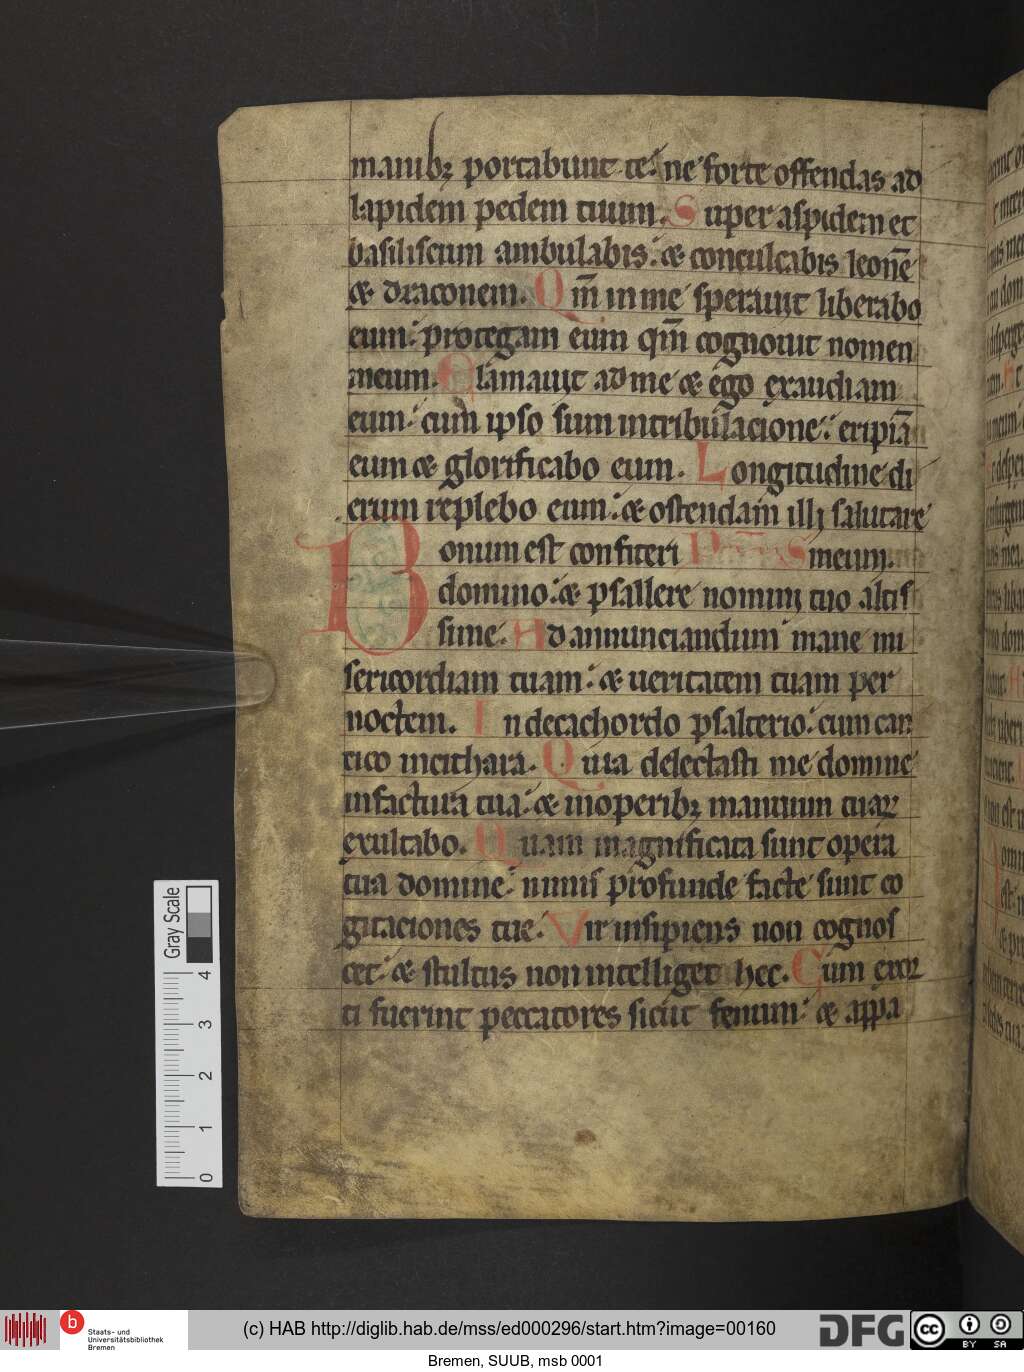 manibꝫ portabunt te. ne forte offendas ad
lapidem pedem tuum. Super aspidem et
basiliscum ambulabis. & conculcabis leonē
& draconem. Qm̄ in me sperauit liberabo
eum. protegam eum qm̄ cognouit nomen
meum. Clamauit ad me & ego exaudiam
eum. cum ipso sum in tribulacione. eripiā
eum & glorificabo eum. Longitudine di
erum replebo eum. & ostendam illi salutare
Bonum est confiteri meum.
domino. & psallere nomini tuo altis
sime. Ad annunciandum mane mi
sericordiam tuam. & ueritatem tuam per
noctem. In decachordo psalterio. cum can
tico in cithara. Quia delectasti me domine
in factura tua. & in operibꝫ manuum tuaꝝ
exultabo. Quam magnificata sunt opera
tua domine. nimis profunde facte sunt co
gitaciones tue. Vir insipiens non cognos
cet. & stultus non intelliget hec. Cum exor
ti fuerint peccatores sicut fenum. & appa
Gray Scale
4
3
2
1
0
b
Staats- und
Universitätsbibliothek
Bremen
(c) HAB http://diglib.hab.de/mss/ed000296/start.htm?image=00160
DFG
cc
BY SA
Bremen, SUUB, msb 0001